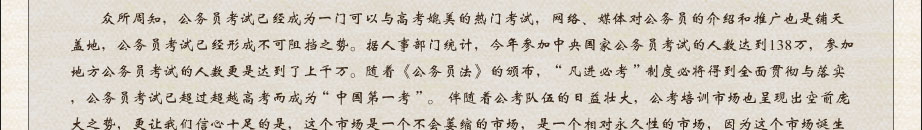 众所周知，公务员考试已经成为一门可以与高考媲美的热门考试，网络、媒体对公务员的介绍和推广也是铺天
盖地，公务员考试已经形成不可阻挡之势。据人事部门统计，今年参加中央国家公务员考试的人数达到138万，参加
地方公务员考试的人数更是达到了上千万。随着《公务员法》的颁布，“凡进必考”制度必将得到全面贯彻与落实
，公务员考试已超过超越高考而成为“中国第一考”。伴随着公考队伍的日益壮大，公考培训市场也呈现出空前庞
大之势，更让我们信心十足的是，这个市场是一个不会萎缩的市场，是一个相对永久性的市场，因为这个市场诞生